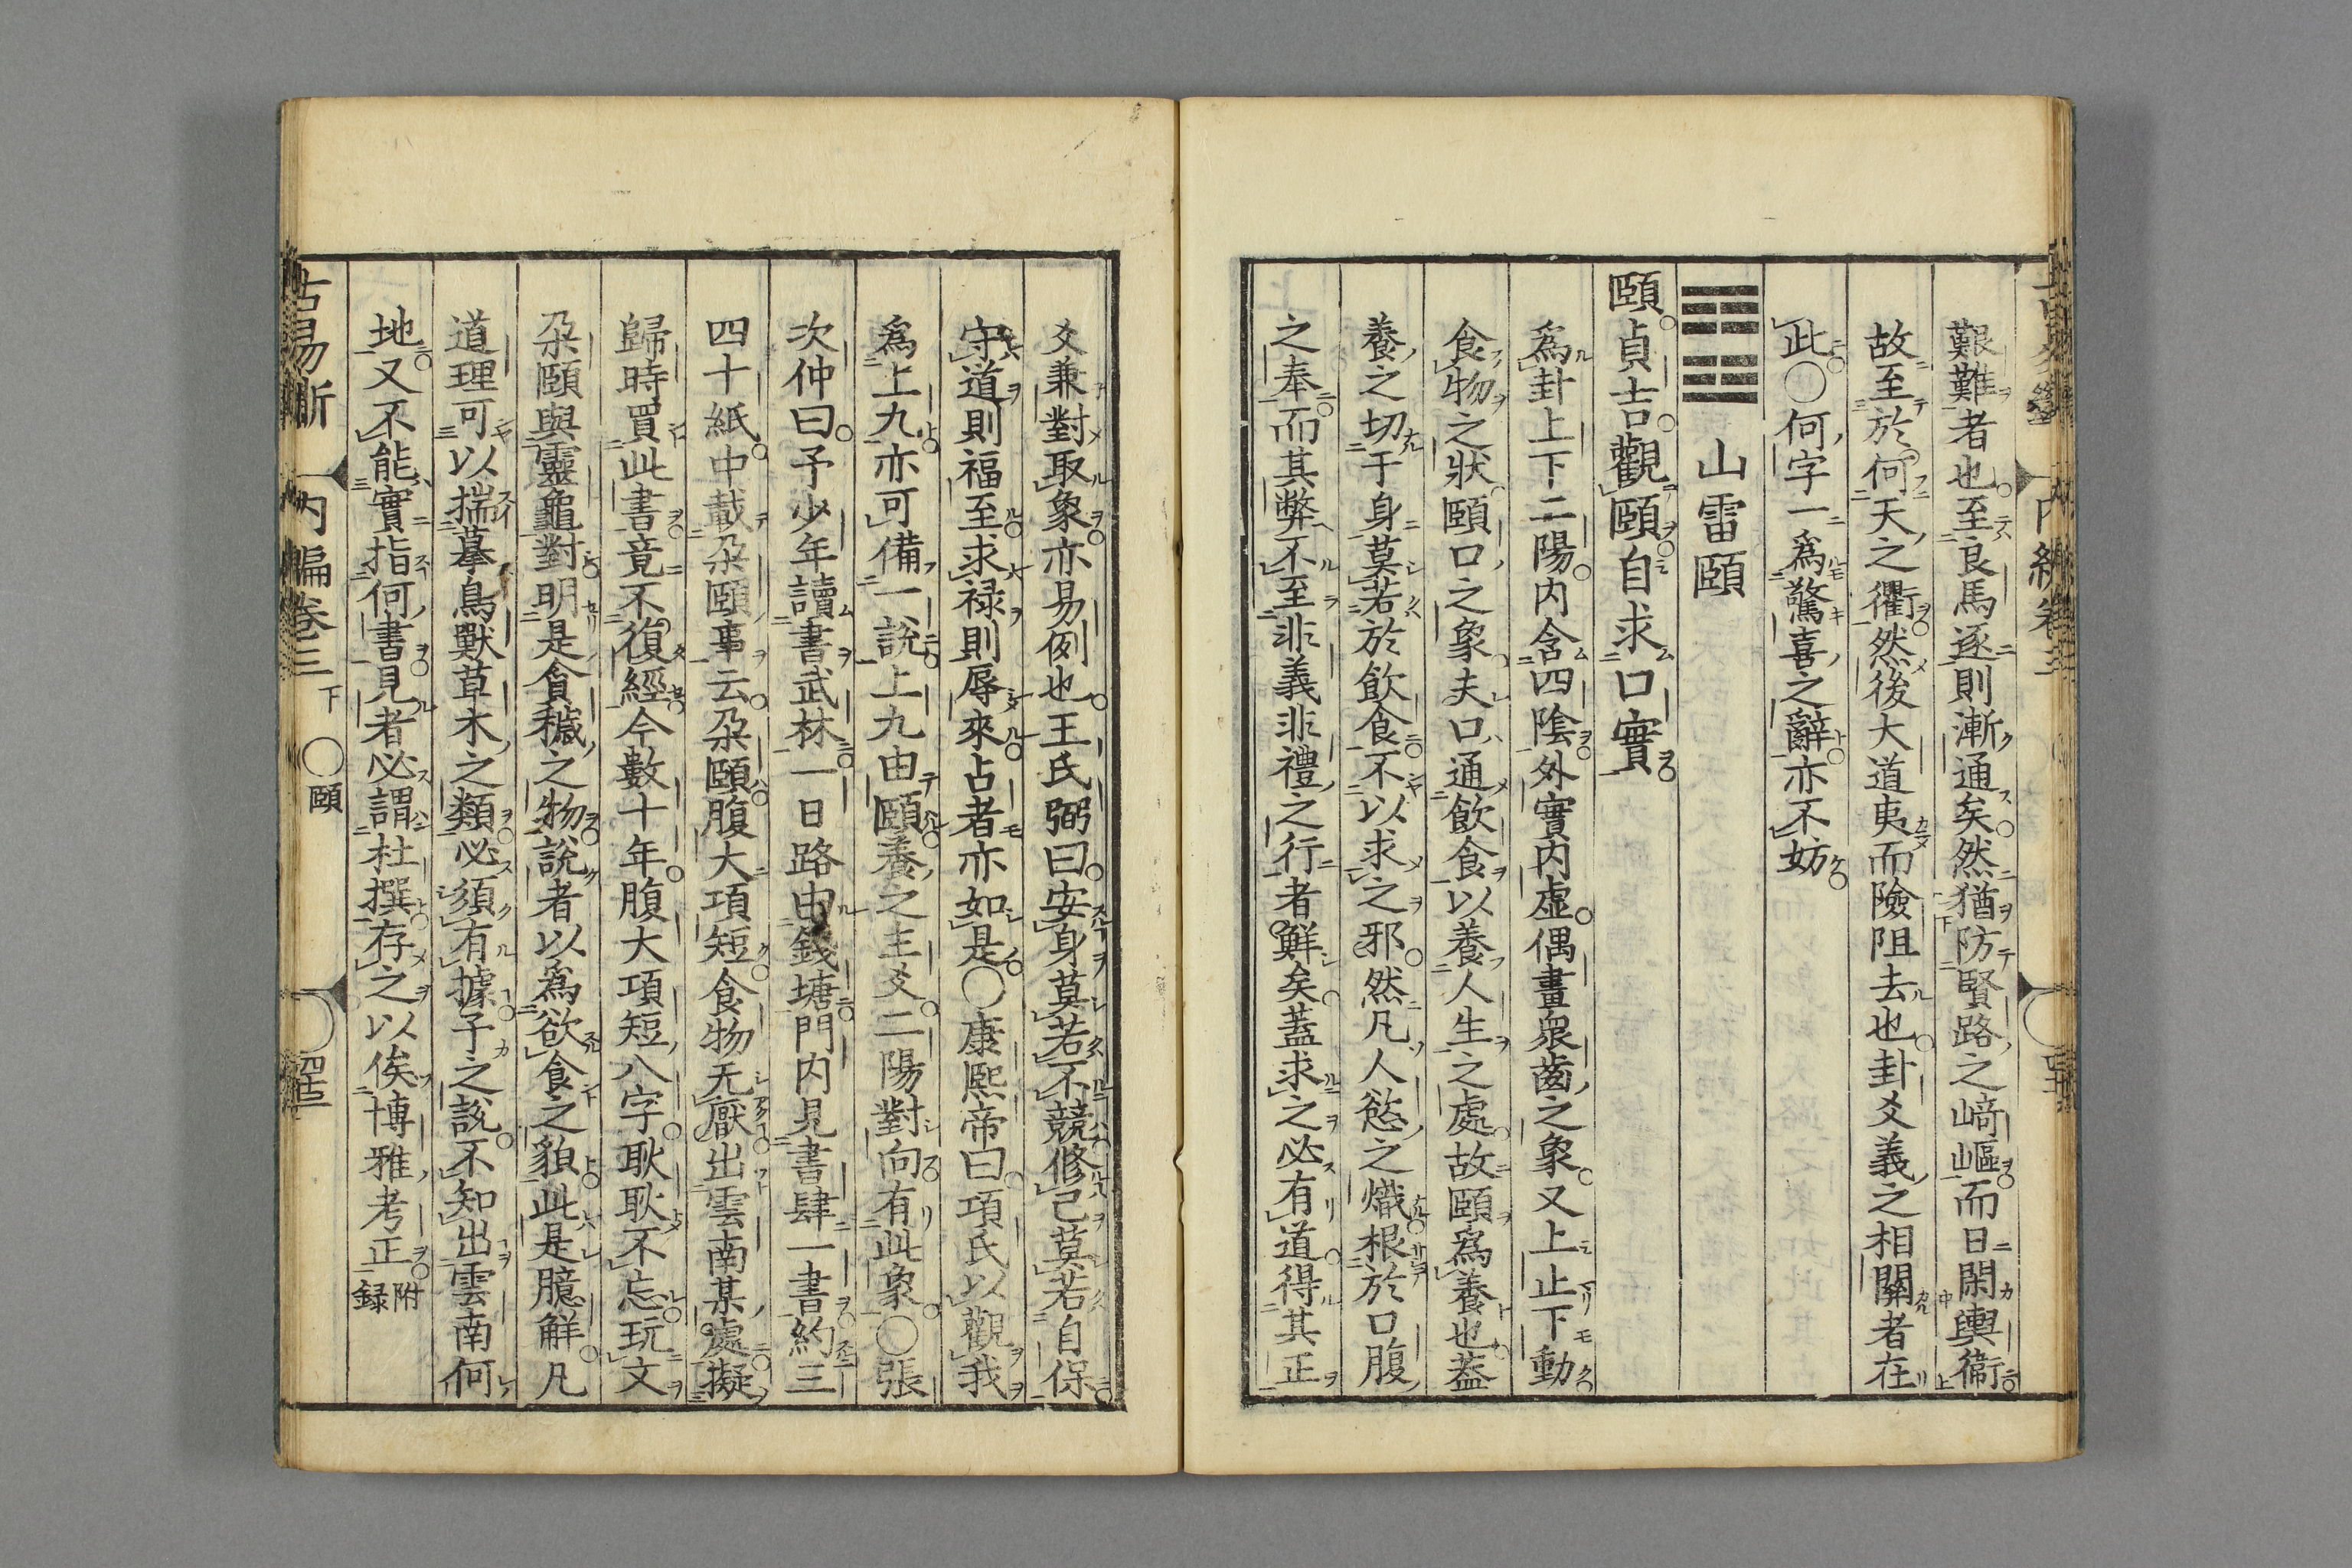 艱難者也至良馬逐則漸通矣然猶防賢路之﨑嶇而日閑輿衞
故至於何天之衢然後大道夷而險阻去也卦爻義之相關者在
此〇何字一爲驚喜之辭亦不妨
山雷頤
頤貞吉觀頤自求口實
爲卦上下二陽内含四陰外實内虛偶畫衆齒之象又上止下動
食物之狀頤口之象夫口通飲食以養人生之處故頤爲養也蓋
養之切于身莫若於飲食不以求之邪然凡人慾之熾根於口腹
之奉而其弊不至非義非禮之行者鮮矣蓋求之必有道得其正
爻兼對取象亦易例也王氏弼曰安身莫若不競修己莫若自保
守道則福至求禄則辱來占者亦如是〇康熙帝曰項氏以觀我
爲上九亦可備一說上九由頤養之主爻二陽對向有此象〇張
次仲曰予少年讀書武林一日路由錢塘門内見書肆一書約三
四十紙中載朶頤事云朶頤腹大項短食物无厭出雲南某處擬
歸時買此書竟不復經今數十年腹大項短八字耿耿不忘玩文
朶頤與靈龜對明是貪穢之物說者以爲欲食之貌此是臆解凡
道理可以揣摹鳥獸草木之類必須有據予之說不知出雲南何
地又不能實指何書見者必謂杜撰存之以俟博雅考正附録
古易斷 内編卷三下 〇頤 四十三